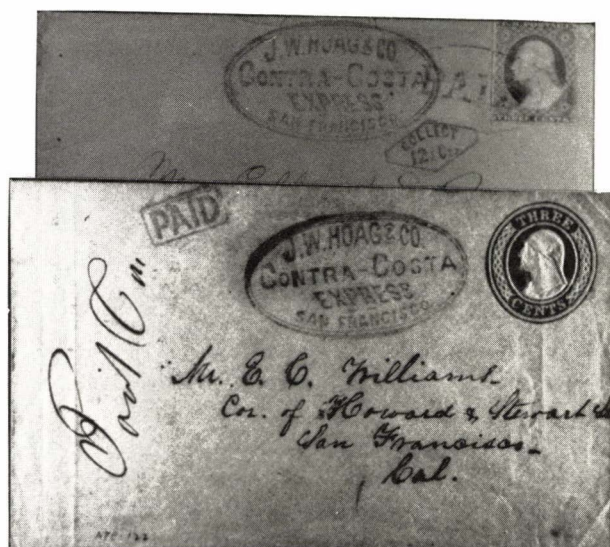 J.W.HOAG & CO.
CONTRA-COSTA
EXPRESS
SAN FRANCISCO
COLLECT
THREE CENTS
PAID
J.W.HOAG & CO.
CONTRA-COSTA
EXPRESS
SAN FRANCISCO
THREE
CENTS
Paid
Mr. E. C. Williams
Cor. of Howard & Stewart
San Francisco
Cal.